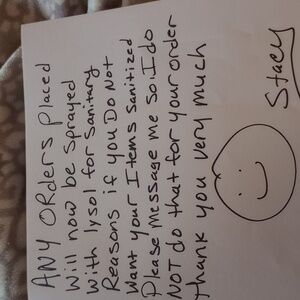 ANY ORders placed
will now be sprayed
with lysol for sanitary
Reasons if you Do Not
Want your Items sanitized
Please Message me so I do
NOT do that for your order
thank you very much
Stacy